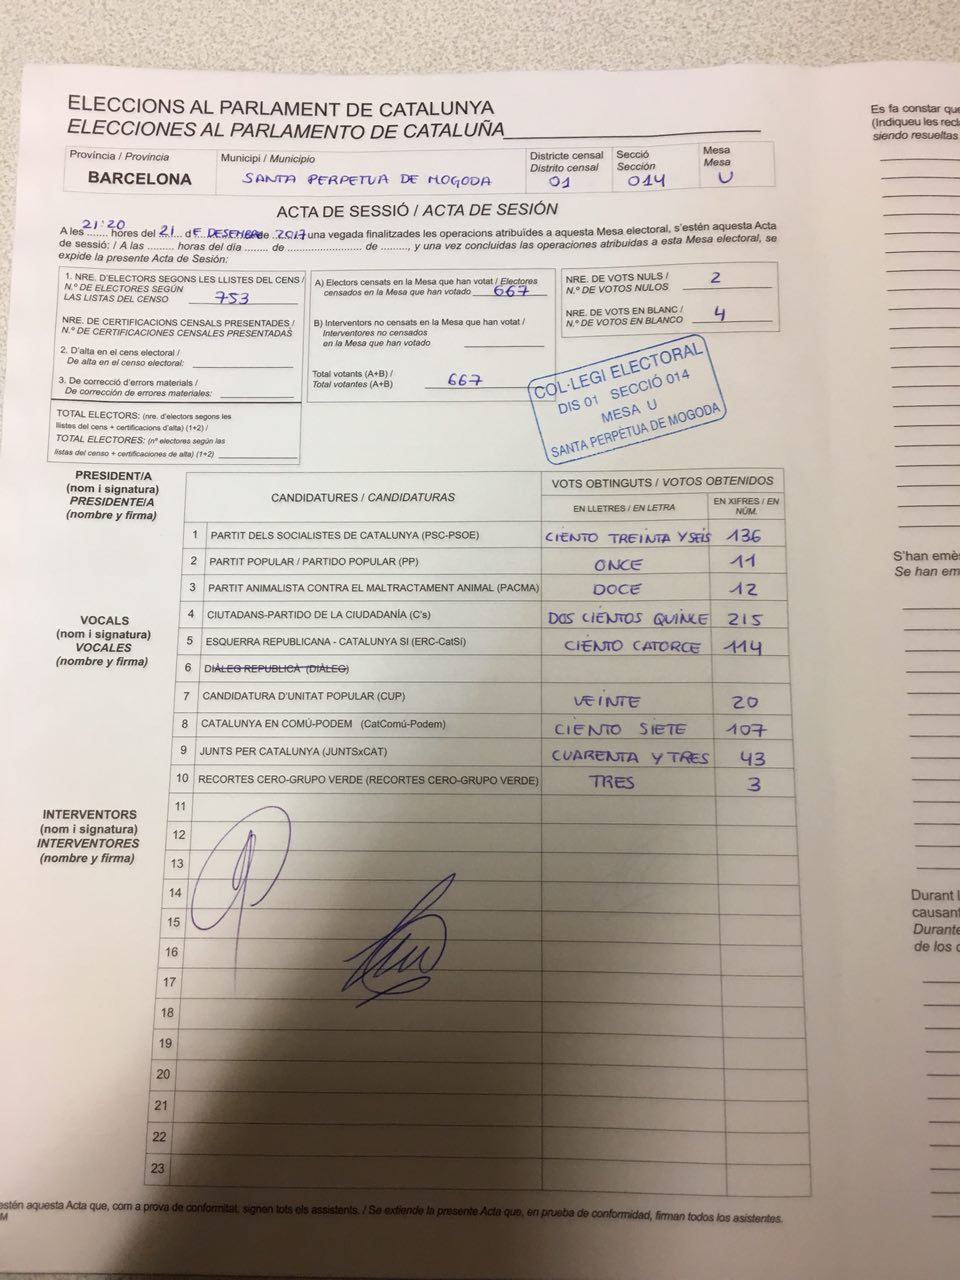 ELECCIONS AL PARLAMENT DE CATALUNYA
ELECCIONES AL PARLAMENTO DE CATALUÑA
Província / Provincia
BARCELONA
Municipi / Municipio
SANTA PERPETUA DE MOGODA
Districte censal
Distrito censal
01
Secció
Sección
014
Mesa
Mesa
U
ACTA DE SESSIÓ / ACTA DE SESIÓN
21:20
A les ........ hores del 21 ... de DESEMBRE de 2017 una vegada finalitzades les operacions atribuïdes a aquesta Mesa electoral, s'estén aquesta Acta
de sessió: / A las ......... horas del día ...... de ...................... de ........, y una vez concluidas las operaciones atribuidas a esta Mesa electoral, se
expide la presente Acta de Sesión:
1. NRE. D'ELECTORS SEGONS LES LLISTES DEL CENS /
N.º DE ELECTORES SEGÚN
LAS LISTAS DEL CENSO 753
NRE. DE CERTIFICACIONS CENSALS PRESENTADES /
N.º DE CERTIFICACIONES CENSALES PRESENTADAS
2. D'alta en el cens electoral /
De alta en el censo electoral:
3. De correcció d'errors materials /
De corrección de errores materiales:
TOTAL ELECTORS: (nre. d'electors segons les
llistes del cens + certificacions d'alta) (1+2) /
TOTAL ELECTORES: (nº electores según las
listas del censo + certificaciones de alta) (1+2)
A) Electors censats en la Mesa que han votat / Electores
censados en la Mesa que han votado 667
B) Interventors no censats en la Mesa que han votat /
Interventores no censados
en la Mesa que han votado
Total votants (A+B) /
Total votantes (A+B) 667
NRE. DE VOTS NULS /
N.º DE VOTOS NULOS 2
NRE. DE VOTS EN BLANC /
N.º DE VOTOS EN BLANCO 4
COL·LEGI ELECTORAL
DIS 01 SECCIÓ 014
MESA U
SANTA PERPÈTUA DE MOGODA
PRESIDENT/A
(nom i signatura)
PRESIDENTE/A
(nombre y firma)
VOCALS
(nom i signatura)
VOCALES
(nombre y firma)
INTERVENTORS
(nom i signatura)
INTERVENTORES
(nombre y firma)
CANDIDATURES / CANDIDATURAS
VOTS OBTINGUTS / VOTOS OBTENIDOS
EN LLETRES / EN LETRA
EN XIFRES / EN
NÚM.
1 PARTIT DELS SOCIALISTES DE CATALUNYA (PSC-PSOE) CIENTO TREINTA Y SEIS 136
2 PARTIT POPULAR / PARTIDO POPULAR (PP) ONCE 11
3 PARTIT ANIMALISTA CONTRA EL MALTRACTAMENT ANIMAL (PACMA) DOCE 12
4 CIUTADANS-PARTIDO DE LA CIUDADANÍA (C's) DOS CIENTOS QUINCE 215
5 ESQUERRA REPUBLICANA - CATALUNYA SI (ERC-CatSí) CIENTO CATORCE 114
6 DIÀLEG REPUBLICÀ (DIÀLEG)
7 CANDIDATURA D'UNITAT POPULAR (CUP) VEINTE 20
8 CATALUNYA EN COMÚ-PODEM (CatComú-Podem) CIENTO SIETE 107
9 JUNTS PER CATALUNYA (JUNTSxCAT) CUARENTA Y TRES 43
10 RECORTES CERO-GRUPO VERDE (RECORTES CERO-GRUPO VERDE) TRES 3
11
12
13
14
15
16
17
18
19
20
21
22
23
estén aquesta Acta que, com a prova de conformitat, signen tots els assistents. / Se extiende la presente Acta que, en prueba de conformidad, firman todos los asistentes.
M
Es fa constar que
(Indiqueu les recl
siendo resueltas
S'han emès
Se han em
Durant l
causant
Durante
de los c